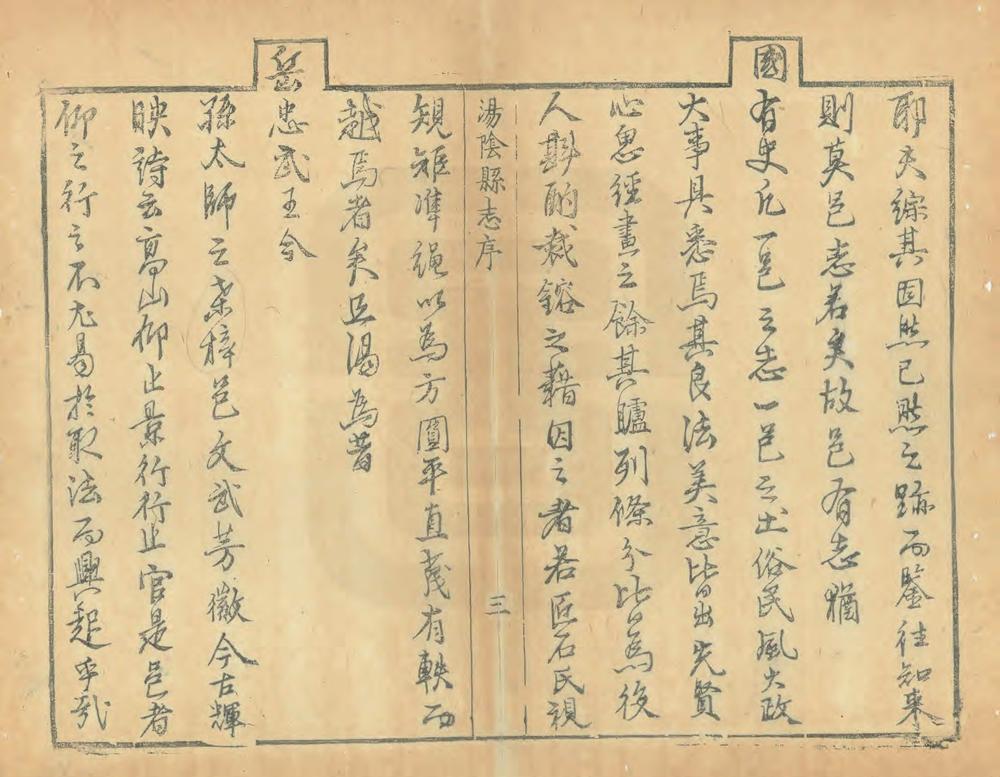 耶夫綜其固然已然之跡而鑒往知來
則莫邑志若矣故邑有志猶
國
有史凡一邑之志一邑之土俗民風大政
大事具悉焉其良法美意皆出先賢
心思經畫之餘其臚列條分皆為後
人斟酌裁鎔之藉因之者若匠石氏視
湯陰縣志序
三
規矩準繩以為方圓平直蔑有軼而
越焉者矣且湯為昔
岳
忠武王今
孫太師之桑梓邑文武芳徽今古輝
映詩云高山仰止景行行止官是邑者
仰之行之不尤易於取法而興起乎哉